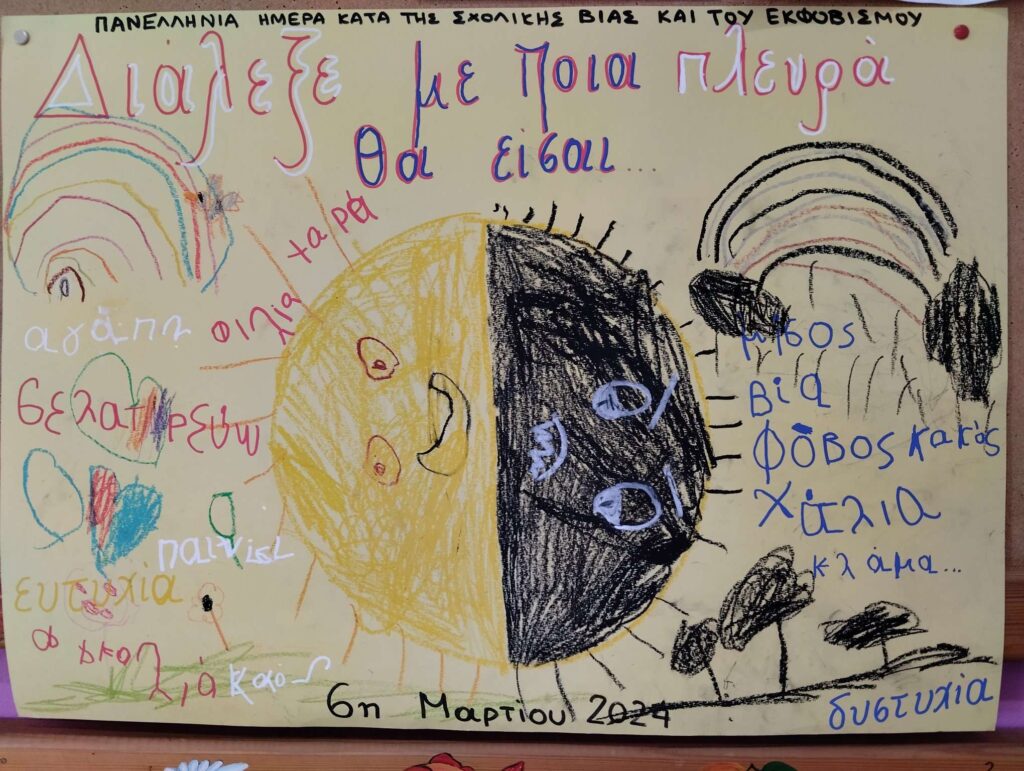 ΠΑΝΕΛΛΗΝΙΑ ΗΜΕΡΑ ΚΑΤΑ ΤΗΣ ΣΧΟΛΙΚΗΣ ΒΙΑΣ ΚΑΙ ΤΟΥ ΕΚΦΟΒΙΣΜΟΥ
Διάλεξε με ποια πλευρά
θα είσαι...
χαρά
φιλία
αγάπη
σελατρεύω
παιχνίδι
ευτυχία
αγκαλιά
καλός
μίσος
βία
φόβος κακός
χάλια
κλάμα...
δυστυχία
6η Μαρτίου 2024